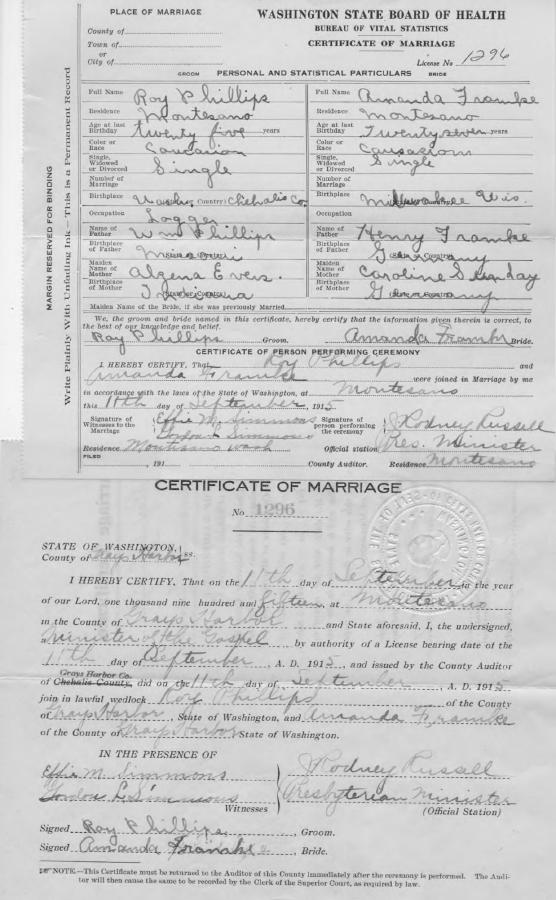 PLACE OF MARRIAGE
County of
Town of
or
City of
WASHINGTON STATE BOARD OF HEALTH
BUREAU OF VITAL STATISTICS
CERTIFICATE OF MARRIAGE
License No 1296
GROOM PERSONAL AND STATISTICAL PARTICULARS BRIDE
Full Name Roy Phillips Full Name Amanda Framke
Residence Montesano Residence Montesano
Age at last Birthday twenty five years Age at last Birthday Twenty seven years
Color or Race Caucasion Color or Race Causacion
Single, Widowed or Divorced Single Single, Widowed or Divorced Single
Number of Marriage Number of Marriage
Birthplace Wash. Chehalis Co. Birthplace Milwaukee Wis.
Occupation Logger Occupation
Name of Father Wm Phillips Name of Father Henry Framke
Birthplace of Father Missouri Birthplace of Father Germany
Maiden Name of Mother Algena Evers. Maiden Name of Mother Caroline Sunday
Birthplace of Mother Birthplace of Mother Germany
Maiden Name of the Bride, if she was previously Married
We, the groom and bride named in this certificate, hereby certify that the information given therein is correct, to
the best of our knowledge and belief.
Roy Phillips Groom. Amanda Framke Bride.
CERTIFICATE OF PERSON PERFORMING CEREMONY
I HEREBY CERTIFY, That Roy Phillips and
Amanda Framke were joined in Marriage by me
in accordance with the laws of the State of Washington, at Montesano
this 11th day of September, 1915
Signature of Witnesses to the Marriage Effie M. Simmons Signature of person performing the ceremony J Rodney Russell
Gordon L Simmons Official station Pres. Minister
Residence Montesano Wash
FILED , 191 County Auditor. Residence Montesano
MARGIN RESERVED FOR BINDING
Write Plainly With Unfading Ink—This is a Permanent Record
CERTIFICATE OF MARRIAGE
No 1296
STATE OF WASHINGTON,
County of Grays Harbor ss.
I HEREBY CERTIFY, That on the 11th day of September in the year
of our Lord, one thousand nine hundred and fifteen, at Montesano
in the County of Grays Harbor and State aforesaid, I, the undersigned,
a Minister of the Gospel by authority of a License bearing date the
11th day of September, A. D. 1915, and issued by the County Auditor
Grays Harbor Co.
of Chehalis County, did on the 11th day of September, A. D. 1915
join in lawful wedlock Roy Phillips of the County
of Grays Harbor, State of Washington, and Amanda Framke
of the County of Grays Harbor State of Washington.
IN THE PRESENCE OF
Effie M. Simmons J Rodney Russell
Gordon L Simmons Presbyterian Minister
Witnesses (Official Station)
Signed Roy Phillips, Groom.
Signed Amanda Framke, Bride.
NOTE.—This Certificate must be returned to the Auditor of this County immediately after the ceremony is performed. The Auditor will then cause the same to be recorded by the Clerk of the Superior Court, as required by law.